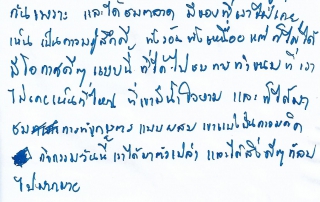 กันเพราะ และได้ชมตลาด มีของที่เราไม่เคย
เห็น เป็นความรู้สึกที่ ทั้งร้อน ทั้งเหนื่อย แต่ก็ไม่ได้
มีโอกาสดีๆ แบบนี้ ที่ได้ไปชม การทำขนม ที่เรา
ไม่เคยเห็นที่ไหน ที่เขามีน้ำใจ และ ก็ได้มา
ชม การทำ แบบ เขาแบ่งเป็นความคิด
กิจกรรมวันนี้ เราได้มาตัวเปล่า และได้สิ่งดีๆ กลับ
ไปมากมาย